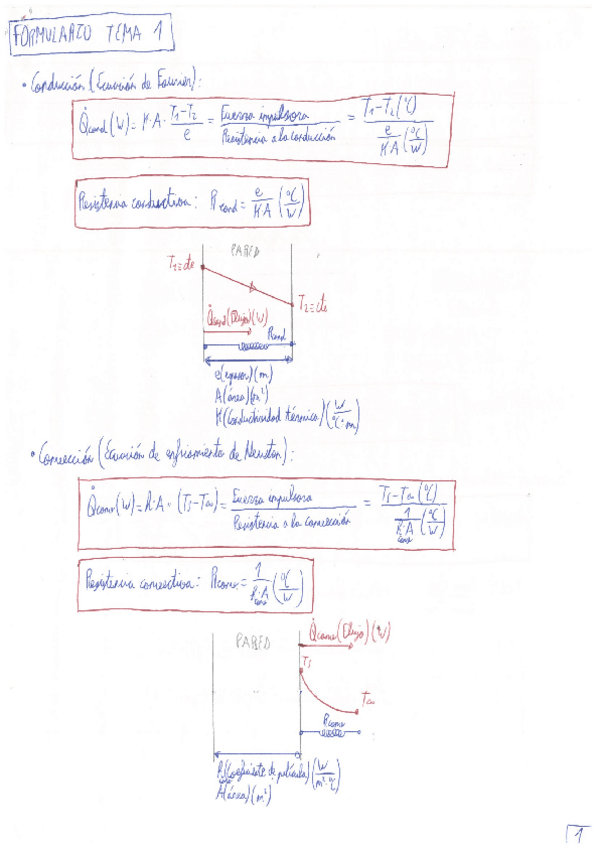 FORMULARIO TEMA 1
• Conducción (Ecuación de Fourier):
Q̇cond (W) = K·A· (T1-T2)/e = Fuerza impulsora / Resistencia a la conducción = T1-T2 (ºC) / (e/(K·A) (ºC/W))
Resistencia conductiva: Rcond = e/(K·A) (ºC/W)
PARED
T1≡cte
T2≡cte
Q̇cond (Flujo) (W)
Rcond.
e (espesor) (m)
A (área) (m²)
K (Conductividad térmica) (W/(ºC·m))
• Convección (Ecuación de enfriamiento de Newton):
Q̇conv (W) = h·A· (Ts-T∞) = Fuerza impulsora / Resistencia a la convección = Ts-T∞ (ºC) / (1/(h·A) (ºC/W))
conv
Resistencia convectiva: Rconv. = 1/(h·A) (ºC/W)
conv
Q̇conv (Flujo) (W)
PARED
Ts
T∞
Rconv
h (Coeficiente de película) (W/(m²·ºC))
A (área) (m²)
1